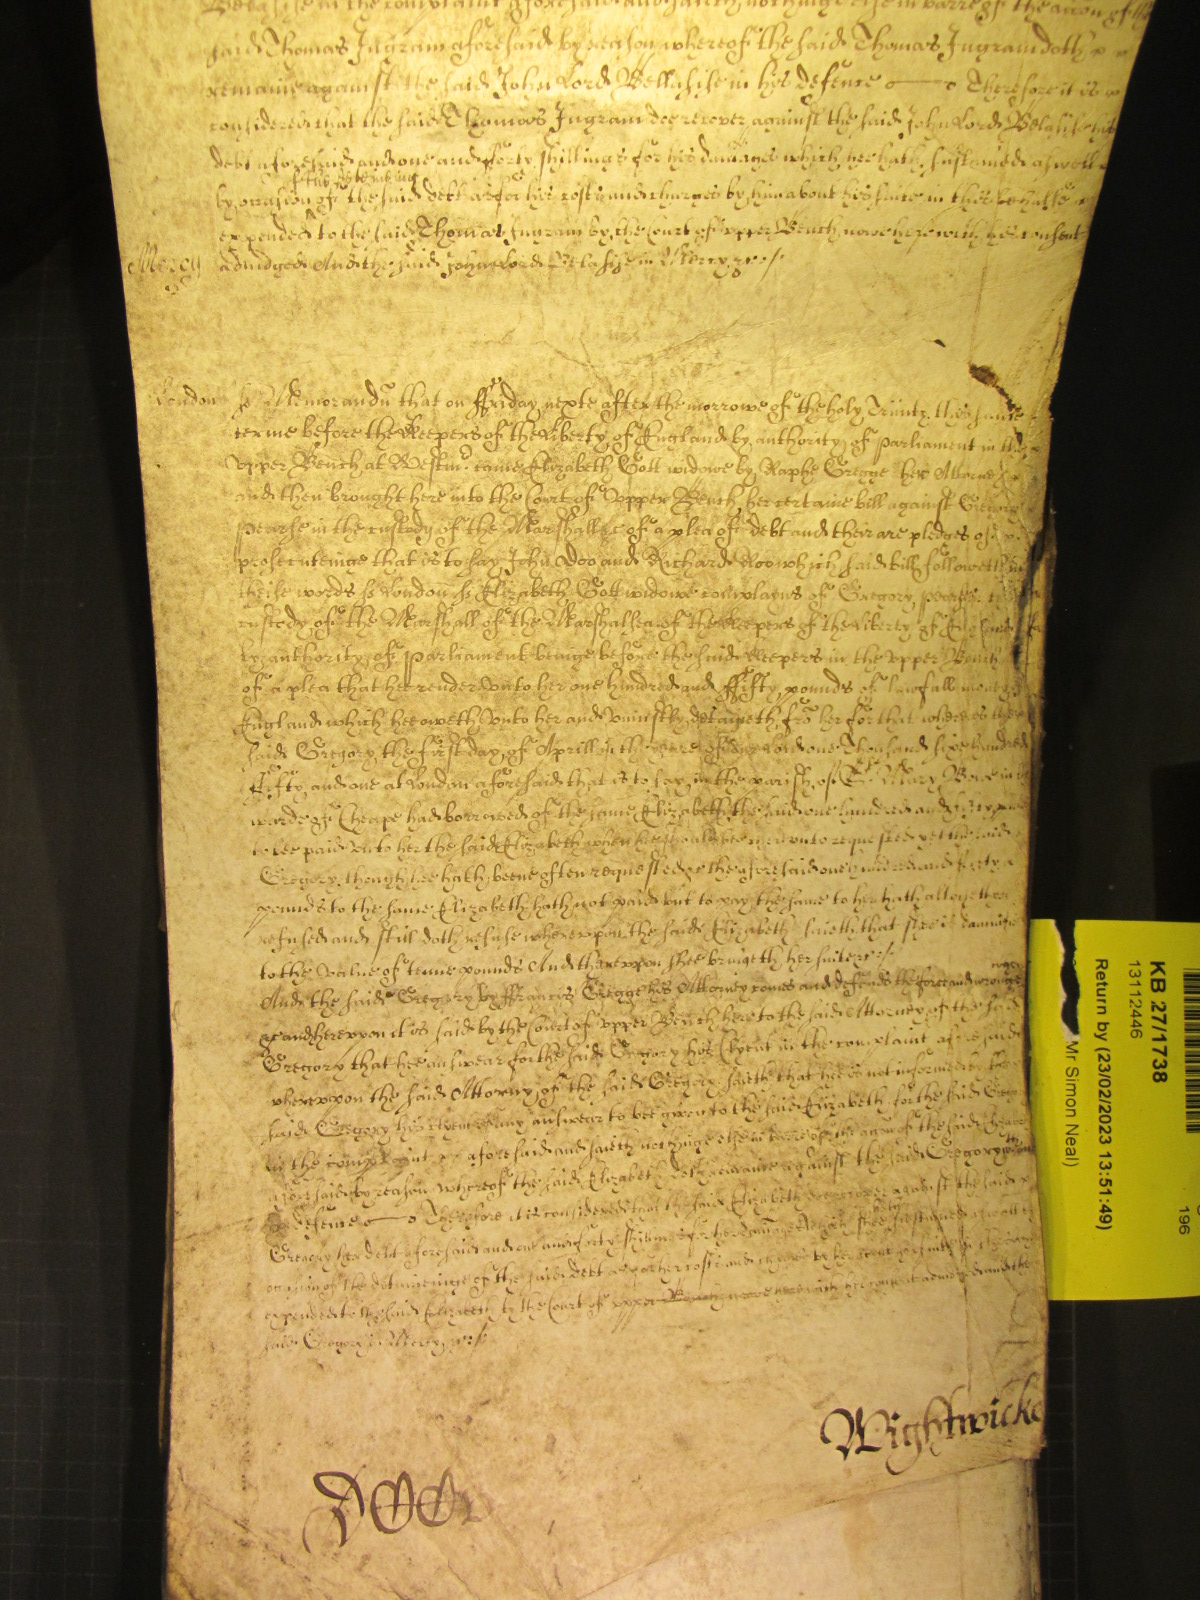 Belasise in the complaint aforesaid and saieth nothinge else in barre of the accon of the
said Thomas Ingram aforesaid by reason whereof the said Thomas Ingram doth
remaine against the said John Lord Bellasise in his defence Therefore it is
considered that the said Thomas Ingram doe recover against the said John Lord Belasise his
debt aforesaid and one and forty shillings for his damages which hee hath susteined aswell
by occasion of the deteyning of the said debt as for his costs and charges by him about his suite in this behalfe
expended to the said Thomas Ingram by the Court of upper Bench nowe here with his consent
Mercy adiudged And the said John Lord Belasise in Mercy &c
London ss Memorandu that on ffriday nexte after the morrowe of the holy Trinity this same
terme before the Keepers of the liberty of England by authority of Parliament in the
upper Bench at Westmr came Elizabeth Gott widowe by Raphe Gregge her Attorney
and then brought here into the Court of upper Bench her certaine bill against Gregory
Pearse in the custody of the Marshall &c of a plea of debt and their are pledges of
prosecuteinge that is to say John Doo and Richard Roo which said bill followeth in
theise words ss London ss Elizabeth Gott widowe complayns of Gregory Pearse in
custody of the Marshall of the Marshalsea of the Keepers of the liberty of England
by authority of Parliament beinge before the said Keepers in the upper Bench
of a plea that hee render unto her one hundred and ffifty pounds of lawfull money of
England which hee oweth unto her and uniustly deteineth fro her for that whereas the
said Gregory the first day of Aprill in the yeare of our Lord one Thousand six hundred
fifty and one at London aforesaid that is to say in the parish of St Mary Bowe in the
warde of Cheape had borrowed of the same Elizabeth the said one hundred and fifty pounds
to bee paid unto her the said Elizabeth when hee should bee thereunto requested yet the said
Gregory though hee hath beene often requested the aforesaid one hundred and fifty
pounds to the same Elizabeth hath not paid but to pay the same to her hath altogether
refused and still doth refuse whereupon the said Elizabeth saieth that shee is damnified
to the value of tenne pounds And thereuppon shee bringeth her suite &c
And the said Gregory by ffrancis Gregge his Attorney comes and defends the force and wronge when
&c and hereupon it is said by the Court of upper Bench here to the said Attorney of the said
Gregory that hee answear for the said Gregory his Clyent in the complaint aforesaid
whereuppon the said Attorny of the said Gregory saieth that hee is not informed by the
said Gregory his Clyent of any answear to bee given to the said Elizabeth for the said Gregory
in the complaint aforesaid and saieth nothinge else in barre of the accon of the said Elizabeth
aforesaid by reason whereof the said Elizabeth doth remaine against the said Gregory without
defence Therefore it is considered that the said Elizabeth doe recover against the said
Gregory her debt aforesaid and one and forty shillings for her damages which shee hath susteined aswell by
occasion of the deteineinge of the said debt as for her costs and charges by her about her suite in this behalfe
expended to the said Elizabeth by the Court of upper Bench nowe here with her consent adiudged and the
said Gregory in Mercy &c
Wightwicke
KB 27/1738
13112446
Return by (23/02/2023 13:51:49)
Mr Simon Neal)
196